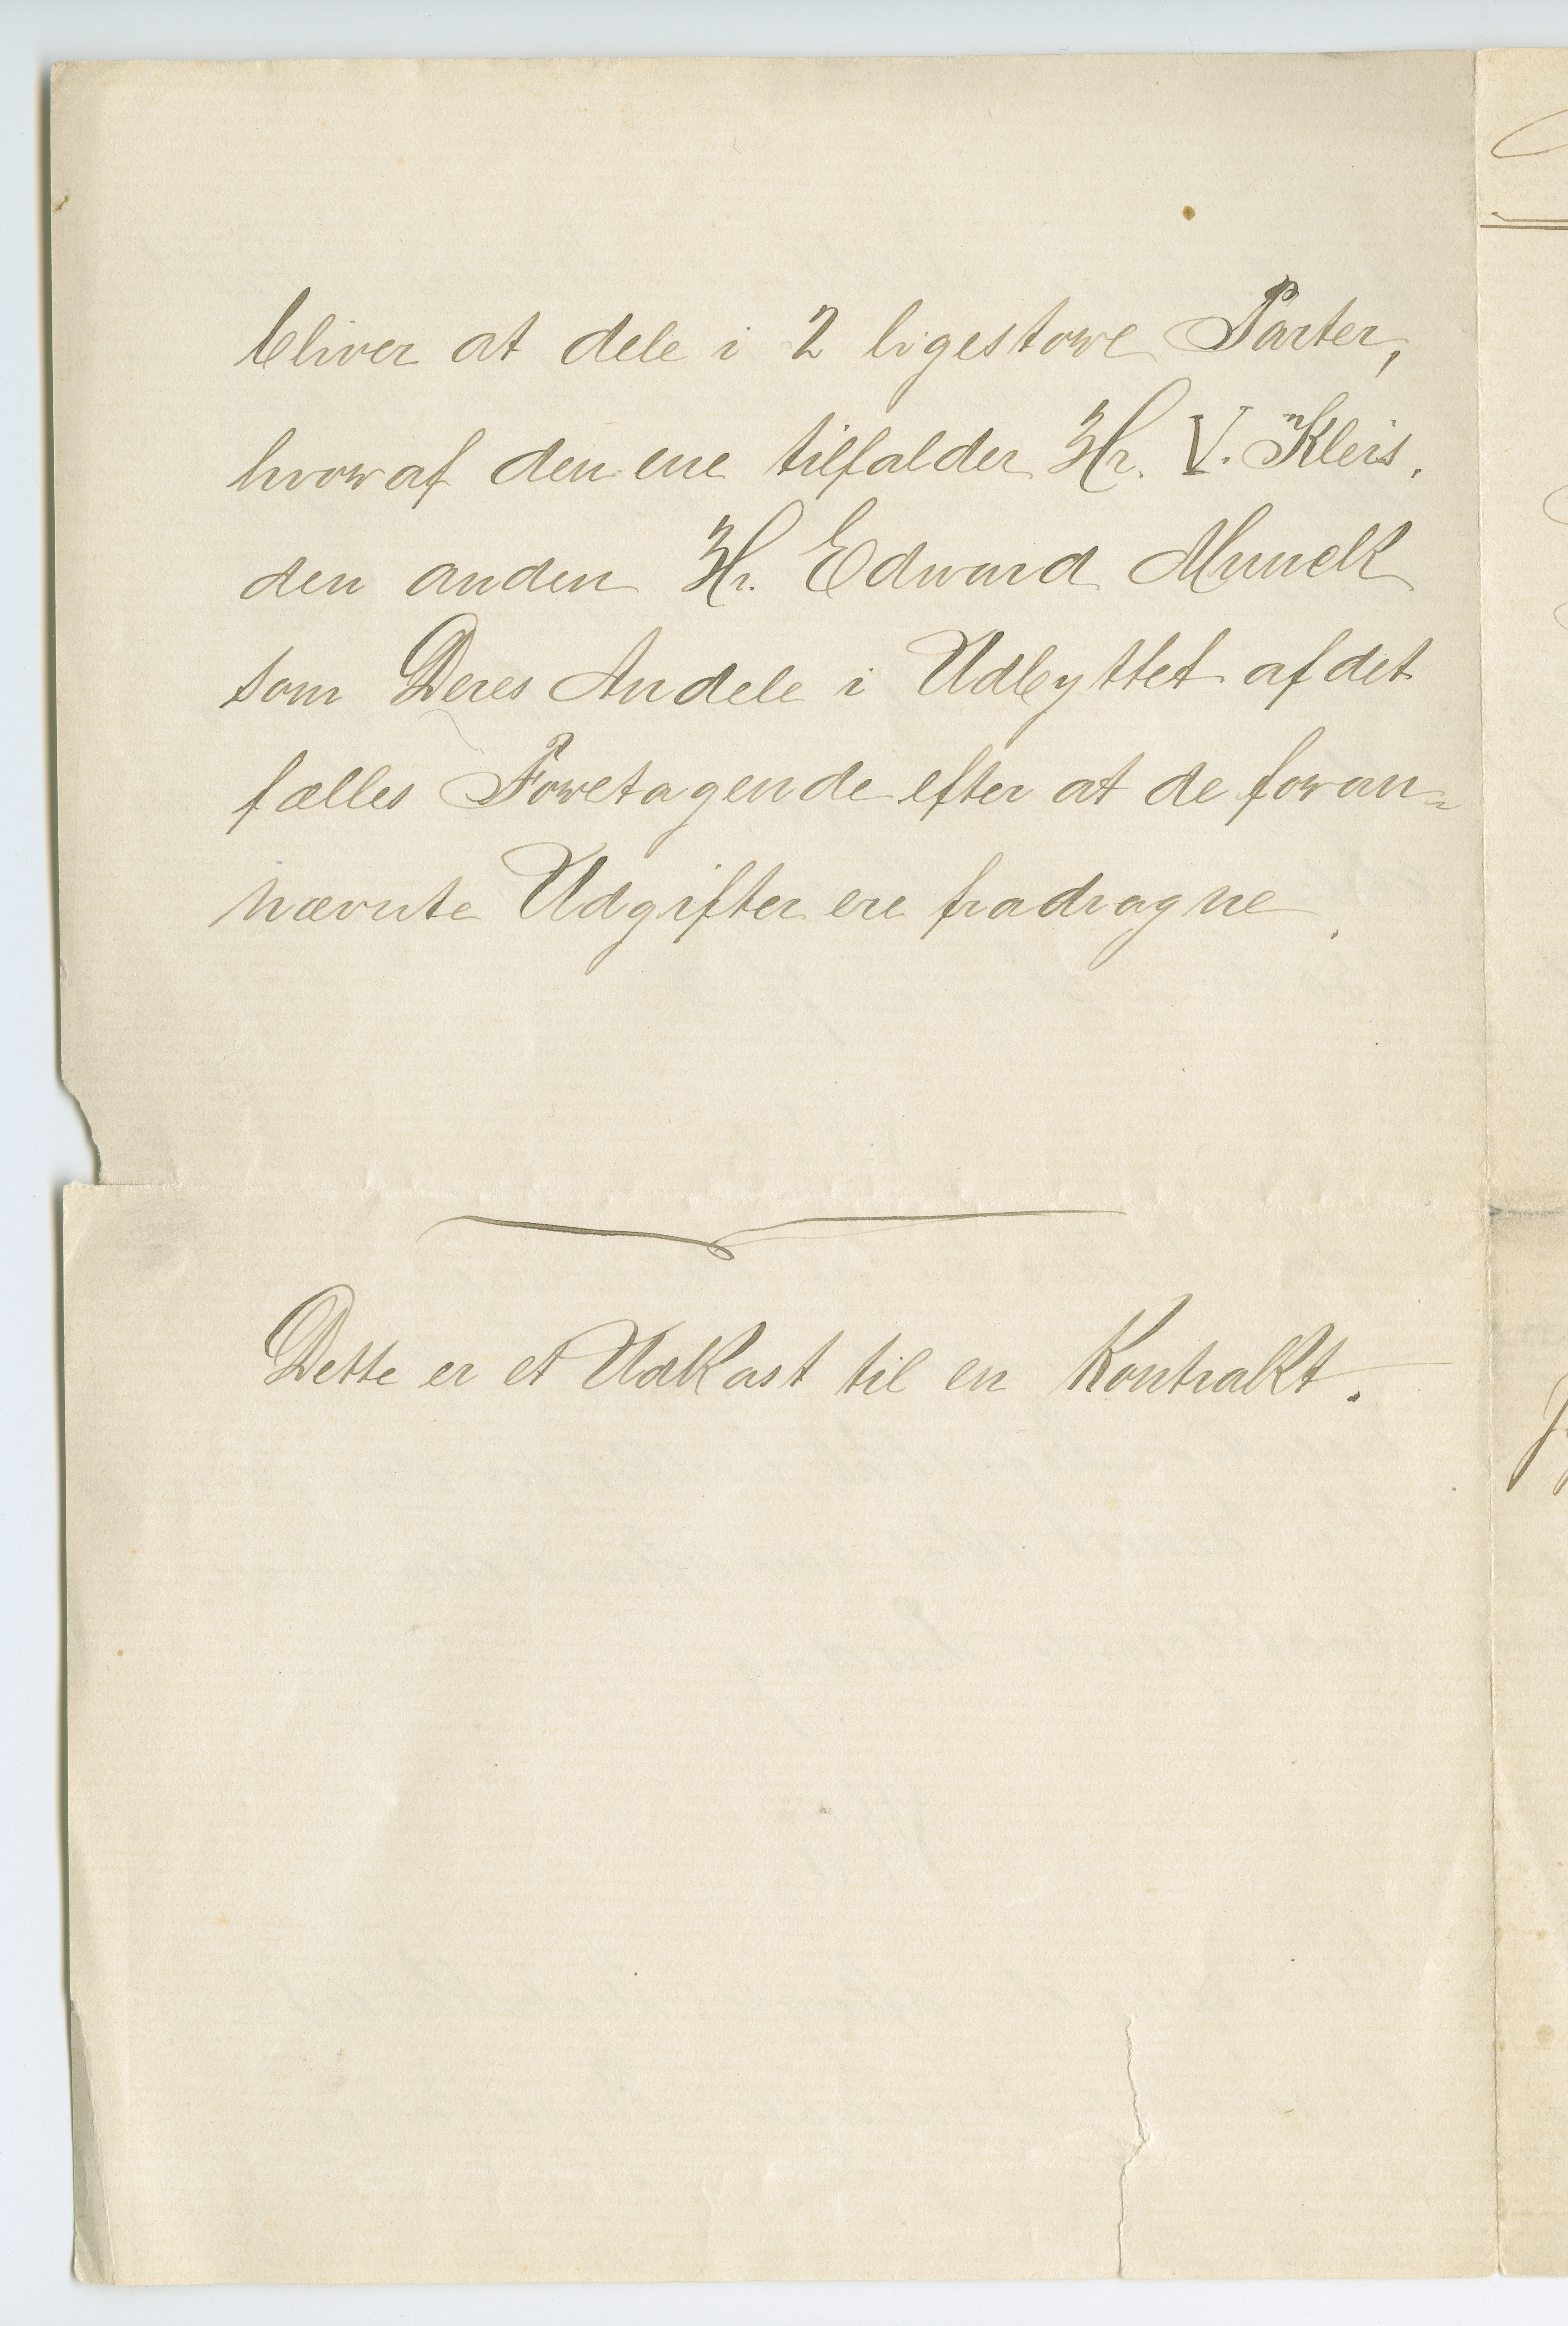 bliver at dele i 2 ligestore Parter,
hvoraf den ene tilfalder Hr. V. Kleis,
den anden Hr. Edvard Munck
som Deres Andele i Udbyttet af det
fælles Foretagende efter at de foran-
nævnte Udgifter ere fradragne.
Dette er et Udkast til en Kontrakt.